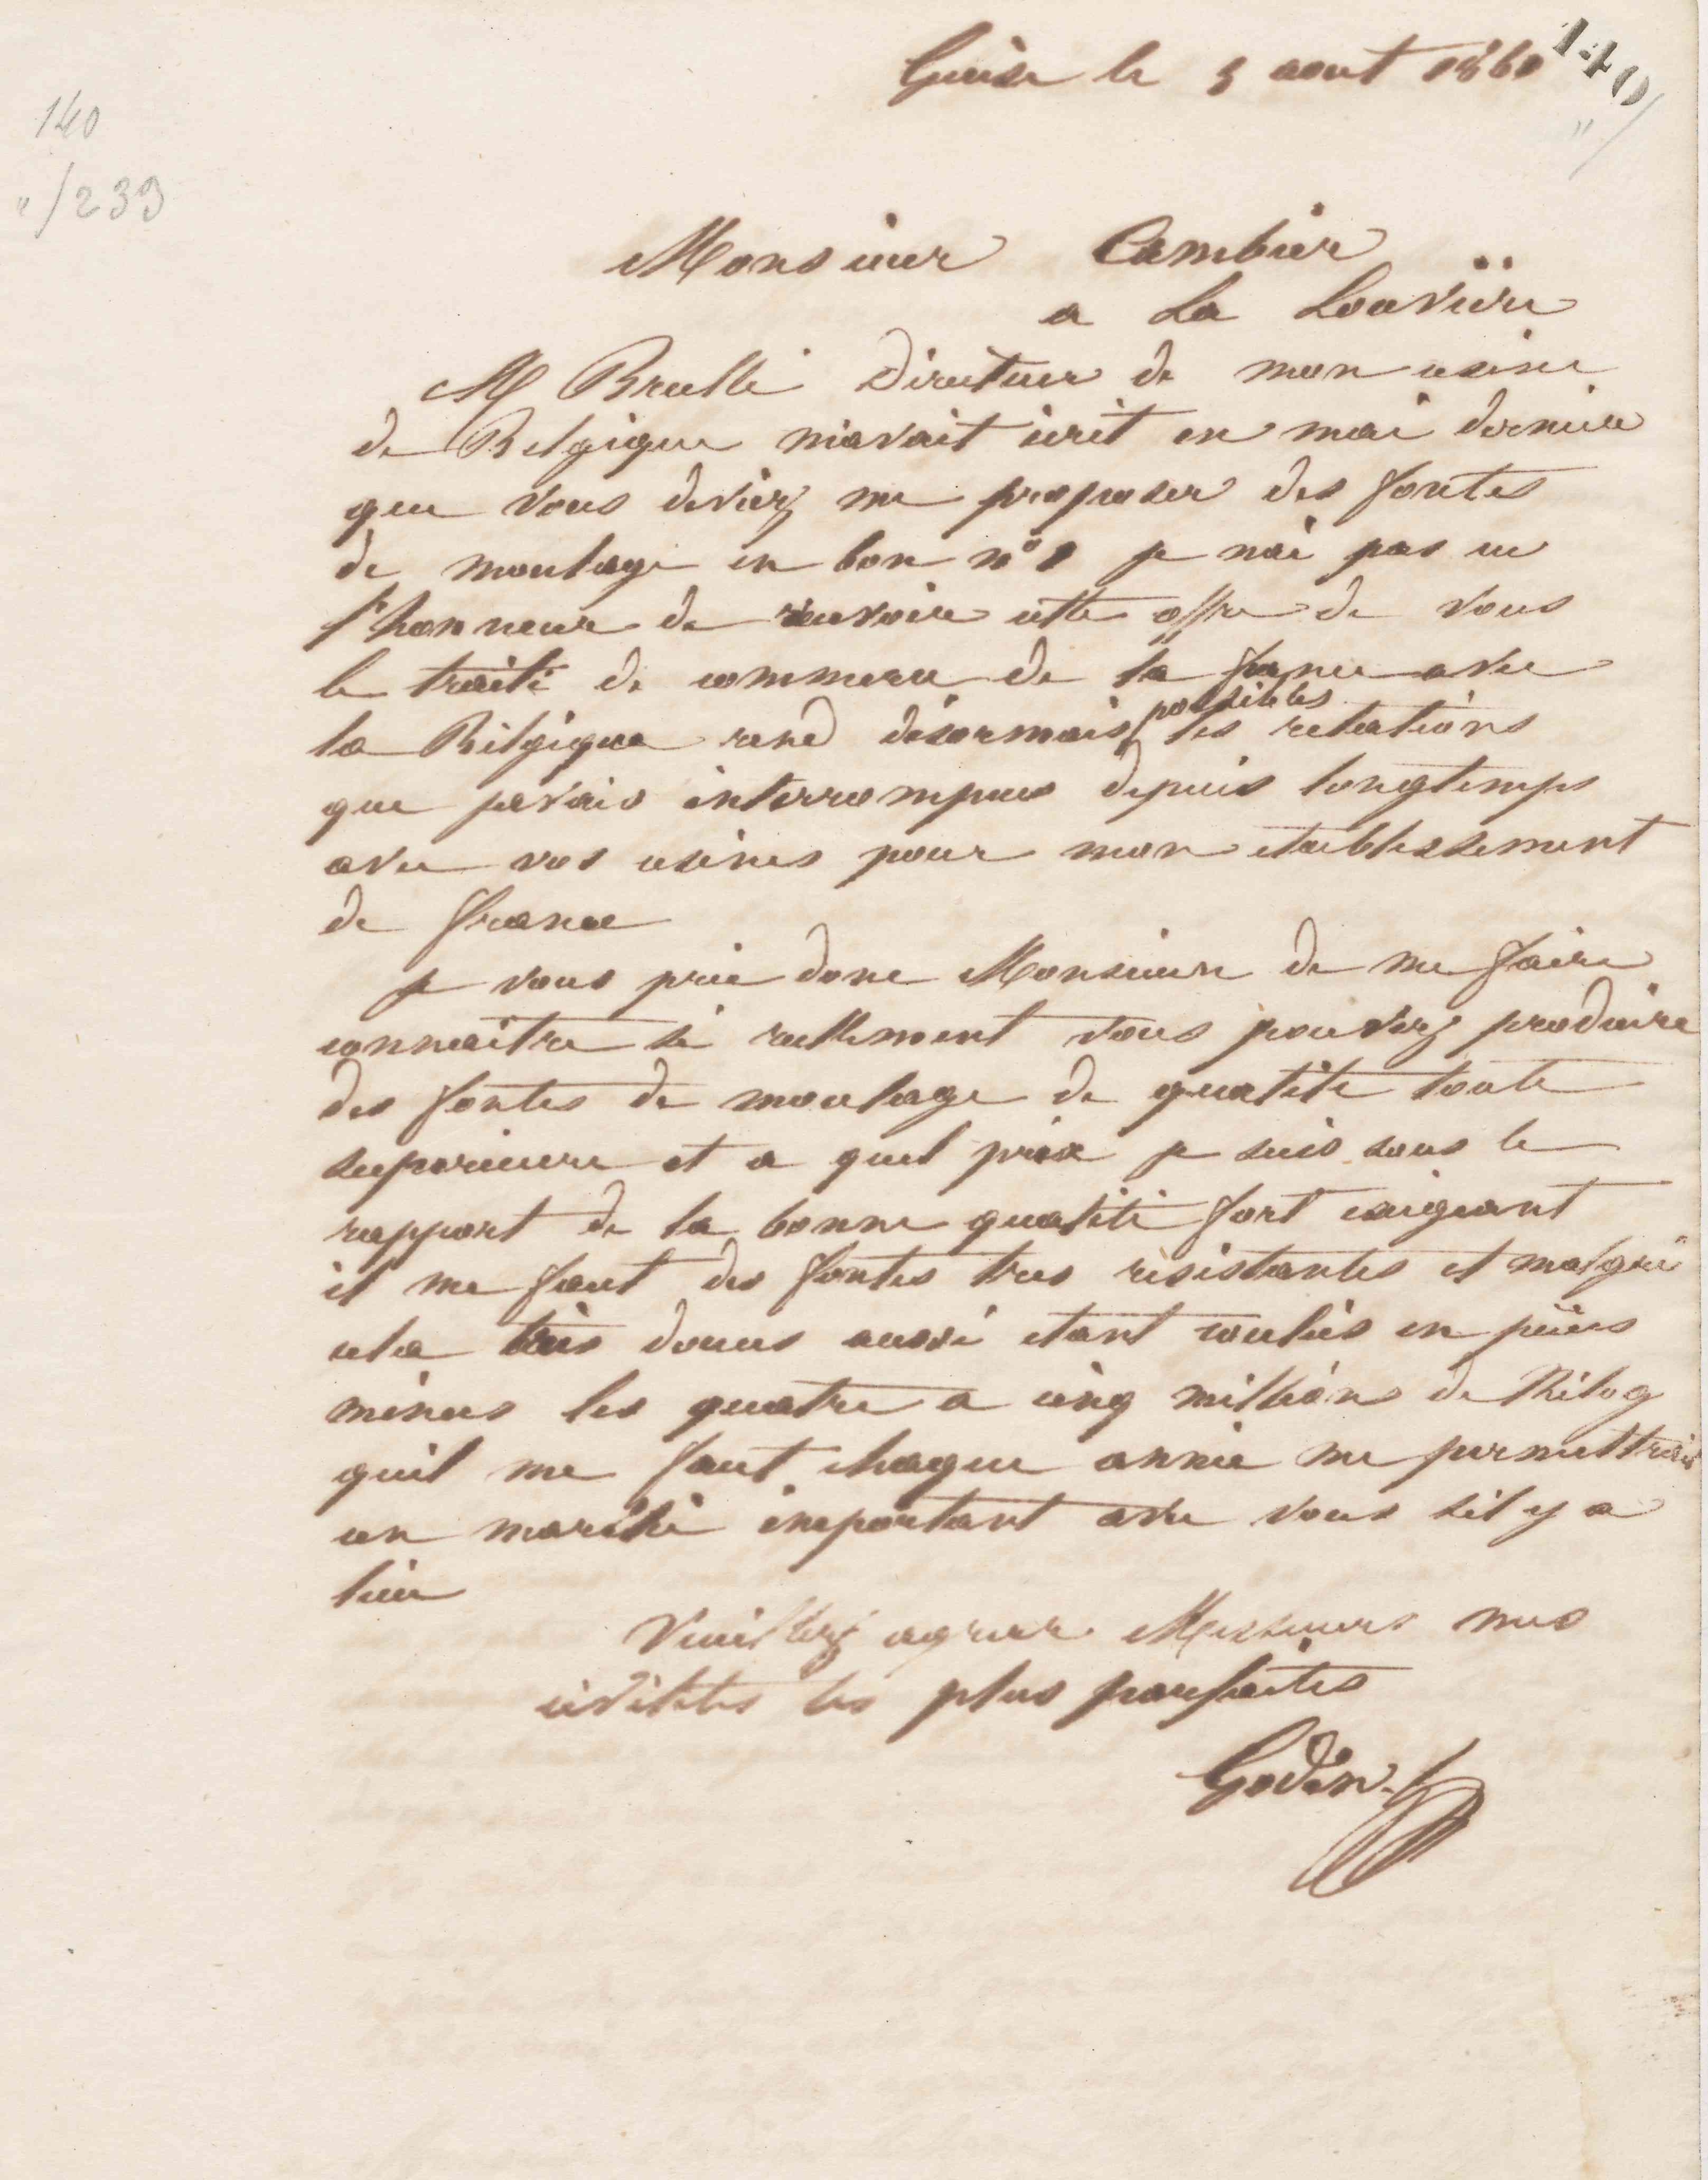 Guise le 5 aout 1861
140
"/
140
"/239
Monsieur Cambier
a La Louvière
M Brullé Directeur de mon usine
de Belgique m'avait écrit en mai dernier
que vous deviez me proposer des fontes
de moulage en bon n° 1 je n'ai pas eu
l'honneur de recevoir cette offre de vous
le traité de commerce de la france avec
la Belgique rend désormais possibles les relations
que j'avais interrompues depuis longtemps
avec vos usines pour mon etablissement
de france
je vous prie donc Monsieur de me faire
connaitre si reellement vous pouvez produire
des fontes de moulage de qualité toute
superieure et a quel prix je suis sous le
rapport de la bonne qualité fort exigeant
il me faut des fontes tres résistantes et malgré
cela très douces aussi etant coulées en pièces
minces les quatre a cinq millions de Kilog
quil me faut chaque année me permettrais
un marché important avec vous sil y a
lieu
Veuillez agréer Messieurs mes
civilités les plus parfaites
Godin